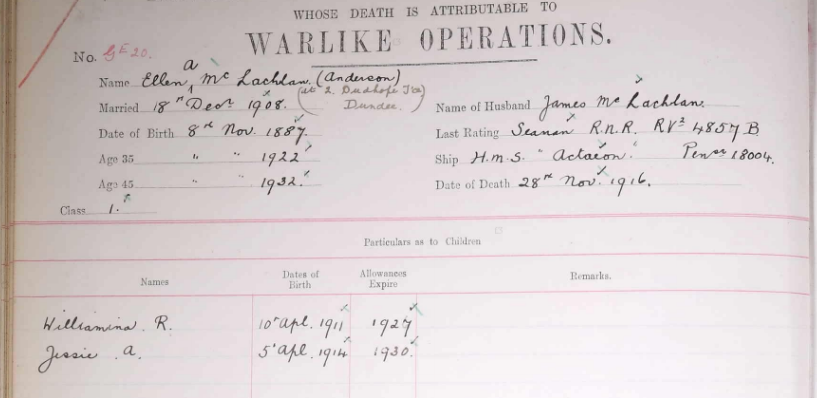 WHOSE DEATH IS ATTRIBUTABLE TO
WARLIKE OPERATIONS.
No. GE 20.
Name Ellen a Mc Lachlan. (Anderson)
Married 18th Decr 1908. (at 2. Dudhope Tce Dundee.)
Date of Birth 8th Nov. 1887.
Age 35 " " 1922
Age 45 " " 1932.
Class 1.
Name of Husband James Mc Lachlan.
Last Rating Seaman R.N.R. RV2 4857 B
Ship H.M.S. "Actaeon." Pensr 18004.
Date of Death 28th Nov. 1916.
Particulars as to Children
Names Dates of Birth Allowances Expire Remarks.
Williamina. R. 10 Apl. 1911 1927
Jessie. A. 5 Apl. 1914 1930.